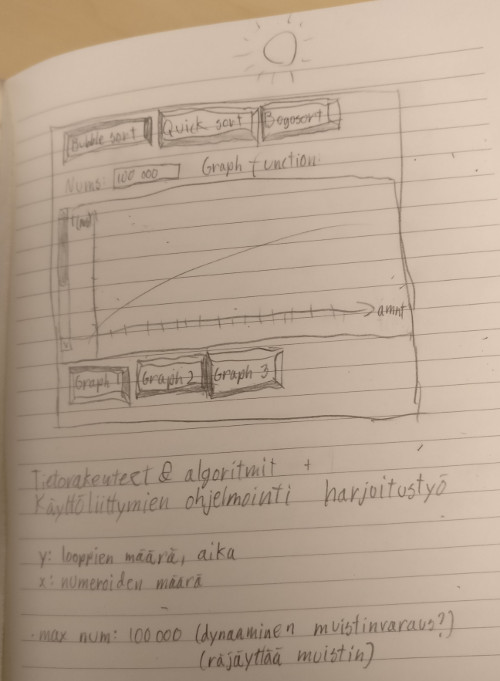 Bubble sort Quick sort Bogosort
Nums: 100 000 Graph function
t(ms)
amnt
Graph 1 Graph 2 Graph 3
Tietorakenteet & algoritmit +
Käyttöliittymien ohjelmointi harjoitustyö
y: looppien määrä, aika
x: numeroiden määrä
· max num: 100 000 (dynaaminen muistinvaraus?)
(räjäyttää muistin)